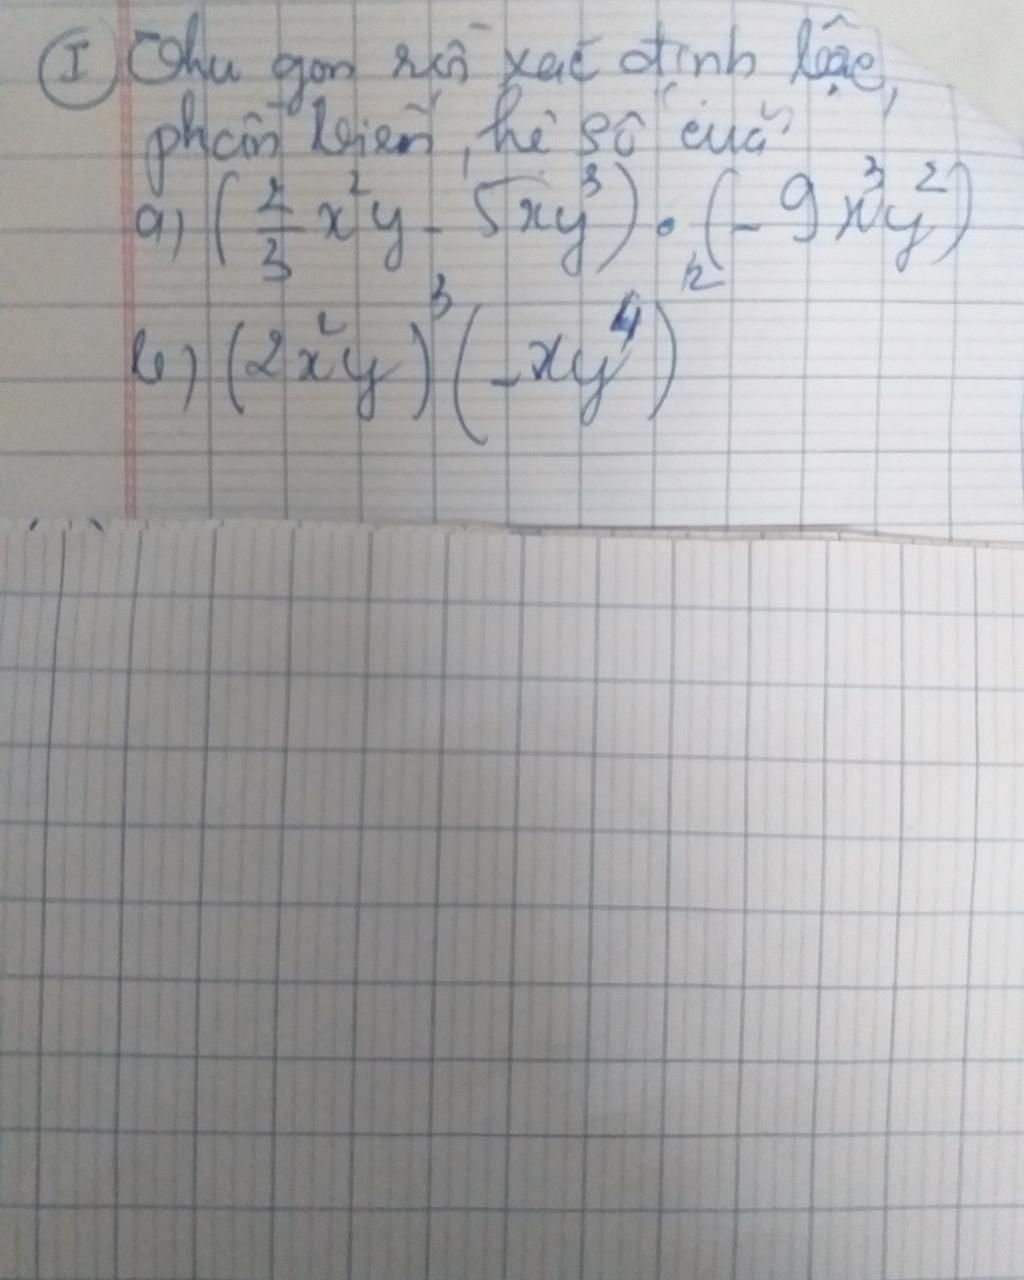 I Thu gọn rồi xác định bậc,
phần biến, hệ số của
a) (2/3 x²y - 5xy³) . (-9x³y²)
b) (2x²y)³ (-xy⁴)²